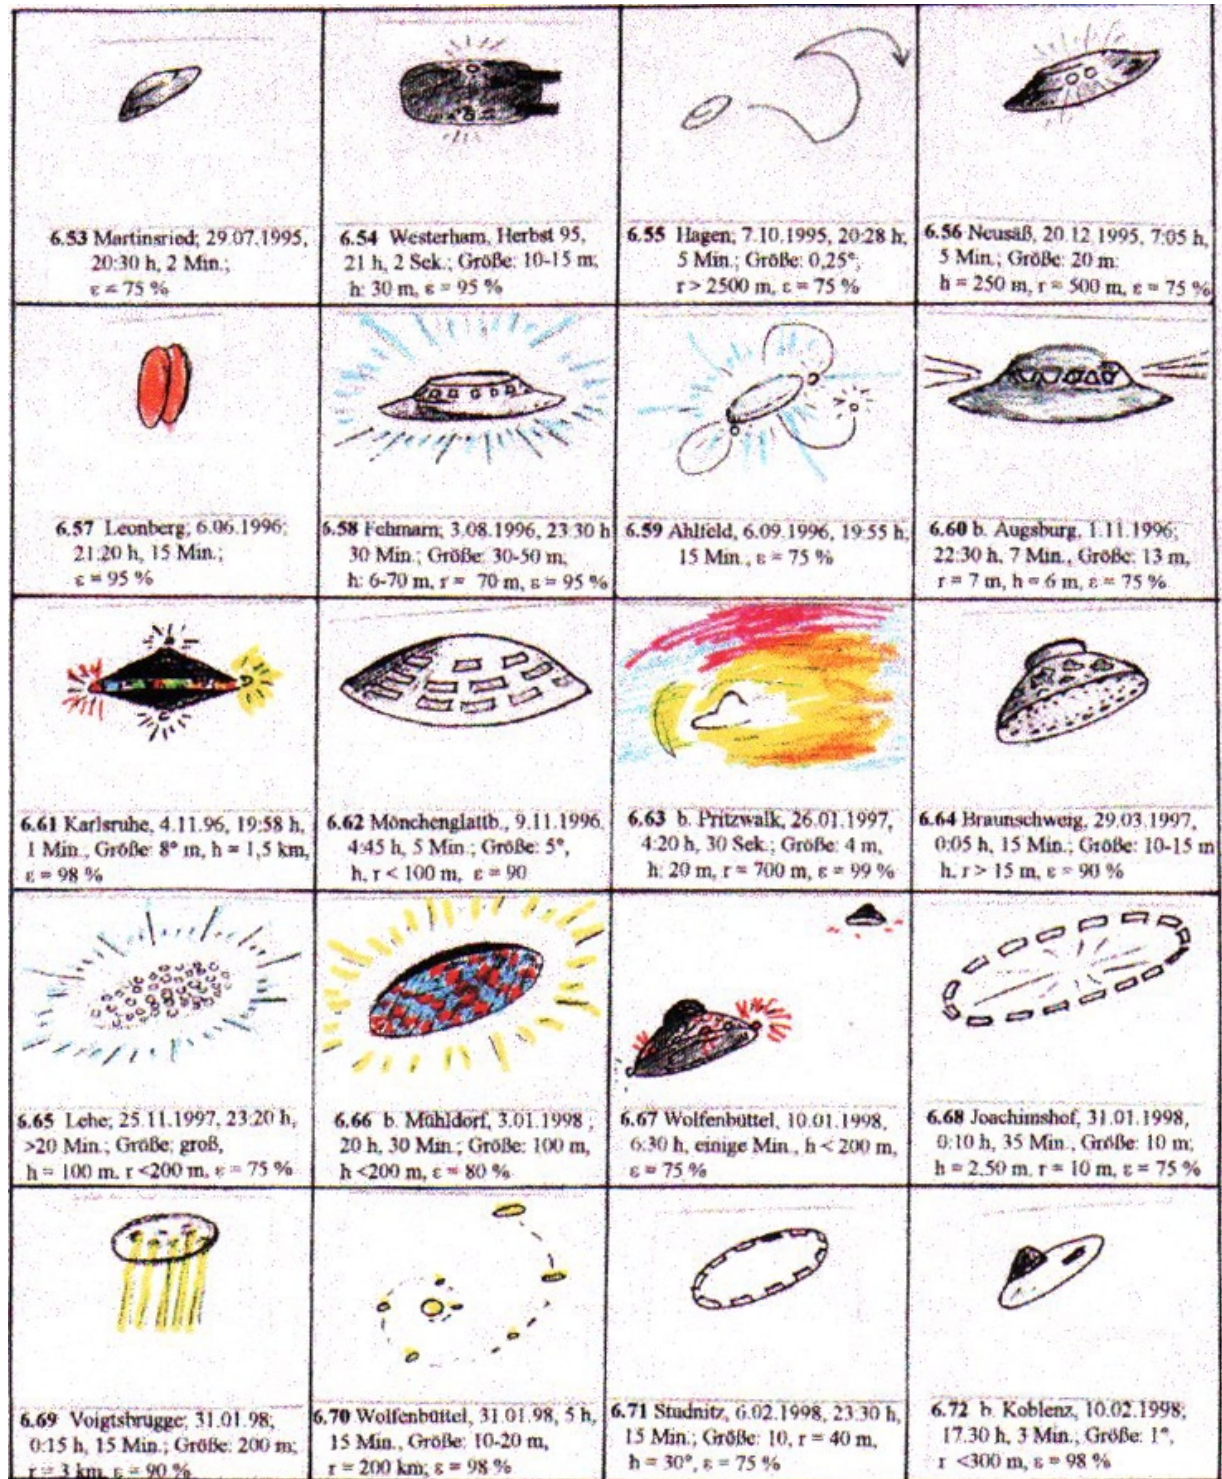 6.53 Martinsried; 29.07.1995,
20:30 h, 2 Min.;
ε = 75 %
6.54 Westerham, Herbst 95,
21 h, 2 Sek.; Größe: 10-15 m;
h: 30 m, ε = 95 %
6.55 Hagen; 7.10.1995, 20:28 h;
5 Min.; Größe: 0,25°;
r > 2500 m, ε = 75 %
6.56 Neusäß, 20.12.1995, 7:05 h,
5 Min.; Größe: 20 m:
h = 250 m, r = 500 m, ε = 75 %
6.57 Leonberg; 6.06.1996;
21:20 h, 15 Min.;
ε = 95 %
6.58 Fehmarn; 3.08.1996, 23:30 h
30 Min.; Größe: 30-50 m;
h: 6-70 m, r = 70 m, ε = 95 %
6.59 Ahlfeld, 6.09.1996, 19:55 h;
15 Min., ε = 75 %
6.60 b. Augsburg, 1.11.1996;
22:30 h, 7 Min., Größe: 13 m,
r = 7 m, h = 6 m, ε = 75 %
6.61 Karlsruhe, 4.11.96, 19:58 h,
1 Min., Größe: 8° m, h = 1,5 km,
ε = 98 %
6.62 Mönchenglattb., 9.11.1996,
4:45 h, 5 Min.; Größe: 5°,
h, r < 100 m, ε = 90
6.63 b. Pritzwalk, 26.01.1997,
4:20 h, 30 Sek.; Größe: 4 m,
h: 20 m, r = 700 m, ε = 99 %
6.64 Braunschweig, 29.03.1997,
0:05 h, 15 Min.; Größe: 10-15 m
h, r > 15 m, ε = 90 %
6.65 Lehe; 25.11.1997, 23:20 h,
>20 Min.; Größe: groß,
h = 100 m, r <200 m, ε = 75 %
6.66 b. Mühldorf, 3.01.1998 ;
20 h, 30 Min.; Größe: 100 m,
h <200 m, ε = 80 %
6.67 Wolfenbüttel, 10.01.1998,
6:30 h, einige Min., h < 200 m,
ε = 75 %
6.68 Joachimshof, 31.01.1998,
0:10 h, 35 Min., Größe: 10 m;
h = 2.50 m. r = 10 m, ε = 75 %
6.69 Voigtsbrugge; 31.01.98;
0:15 h, 15 Min.; Größe: 200 m;
r = 3 km, ε = 90 %
6.70 Wolfenbüttel, 31.01.98, 5 h,
15 Min., Größe: 10-20 m,
r = 200 km; ε = 98 %
6.71 Studnitz, 6.02.1998, 23.30 h,
15 Min.; Größe: 10, r = 40 m,
h = 30°, ε = 75 %
6.72 b. Koblenz, 10.02.1998;
17.30 h, 3 Min.; Größe: 1°,
r <300 m, ε = 98 %